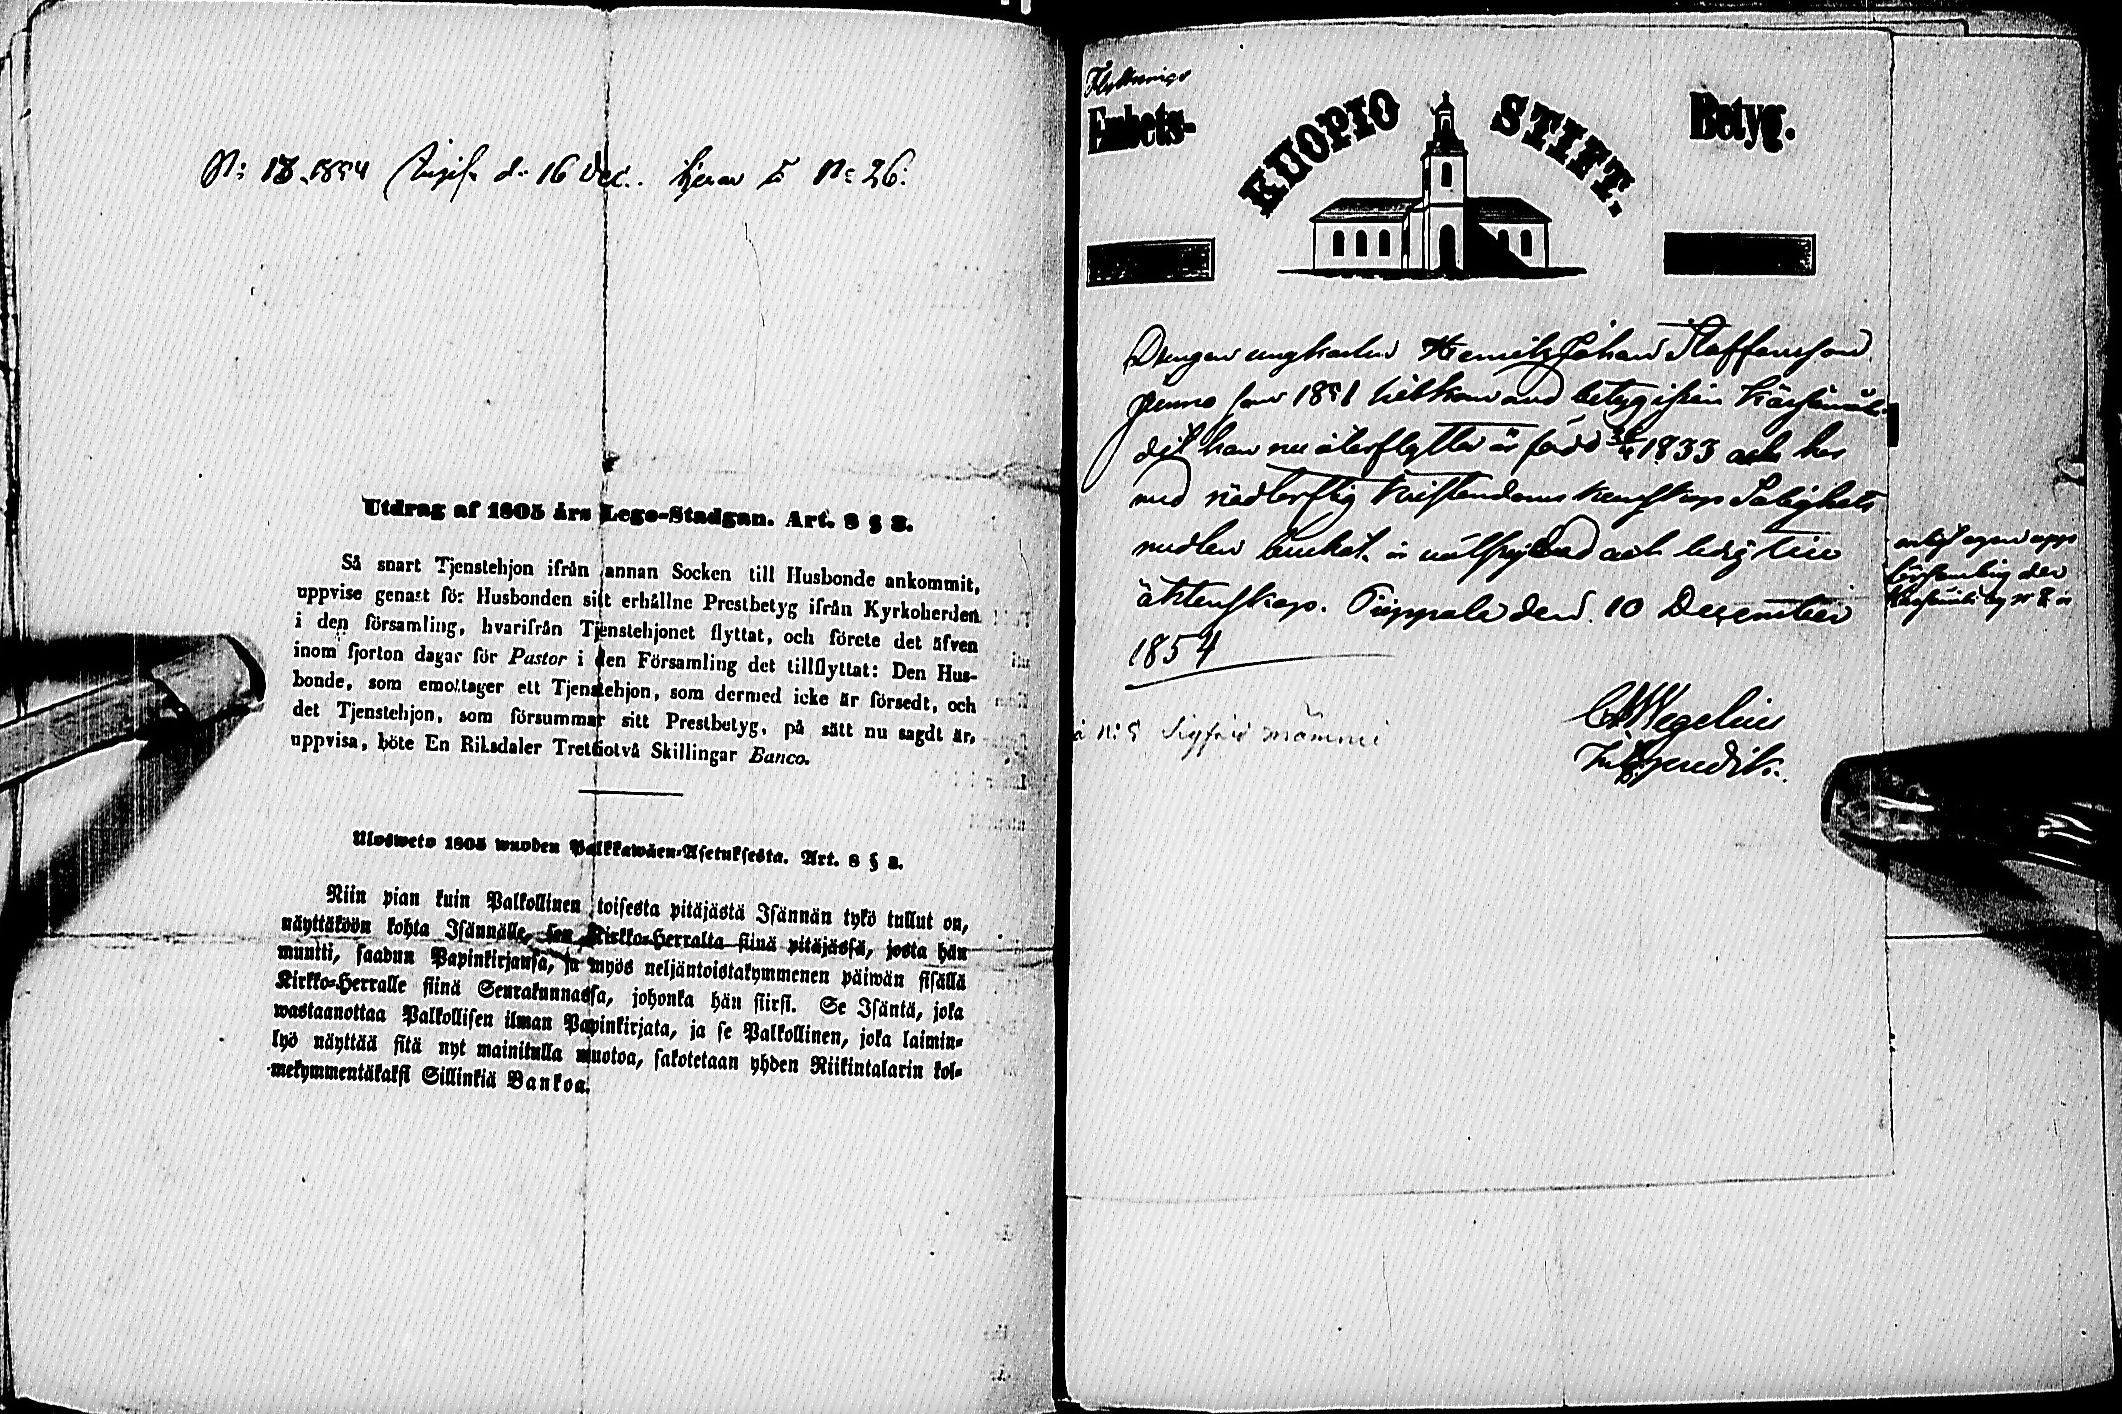 N: 18. 1854 d. 16 Dec. N: 26.
Utdrag af 1805 års Lego-Stadgan. Art. 8 § 3.
Så snart Tjenstehjon ifrån annan Socken till Husbonde ankommit,
uppvise genast för Husbonden sitt erhållne Prestbetyg ifrån Kyrkoherden
i den församling, hvarifrån Tjenstehjonet flyttat, och förete det äfven
inom fjorton dagar för Pastor i den Församling det tillflyttat: Den Hus-
bonde, som emottager ett Tjenstehjon, som dermed icke är försedt, och
det Tjenstehjon, som försummar sitt Prestbetyg, på sätt nu sagdt är,
uppvisa, böte En Riksdaler Trettiotvå Skillingar Banco.
Ulosweto 1805 wuoden Palkkawäen-Asetuksesta. Art. 8 § 3.
Niin pian kuin Palkollinen toisesta pitäjästä Isännän tykö tullut on,
näyttäköön kohta Isännälle, sen Kirkko-Herralta siinä pitäjässä, josta hän
muutti, saadun Papinkirjansa, ja myös neljäntoistakymmenen päiwän sisällä
Kirkko-Herralle siinä Seurakunnassa, johonka hän siirsi. Se Isäntä, joka
wastaanottaa Palkollisen ilman Papinkirjata, ja se Palkollinen, joka laimin-
lyö näyttää sitä nyt mainitulla muotoa, sakotetaan yhden Riikintalarin kol-
mekymmentäkaksi Sillinkiä Bankoa.
Flyttnings
Embets-
KUOPIO STIFT.
Betyg.
Drengen ungkarlen Henrik Johan Staffansson
som 1851 med betyg ifrån Kärsämäki
dit han nu återflyttar är född 1833 och har
med nödtorftig kristendoms kunskap Salighets
medlen brukat. är välfrejdad och ledig till
äktenskap. Piippola den 10 December
1854
enligt egen upp
församling der
C Wegelius
N: 5 Sigfrid